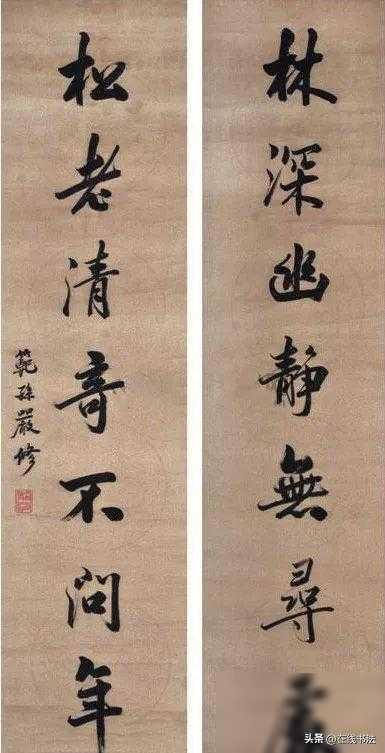 林深幽靜無尋
松老清奇不問年
範孫嚴修
头条 @在线书法